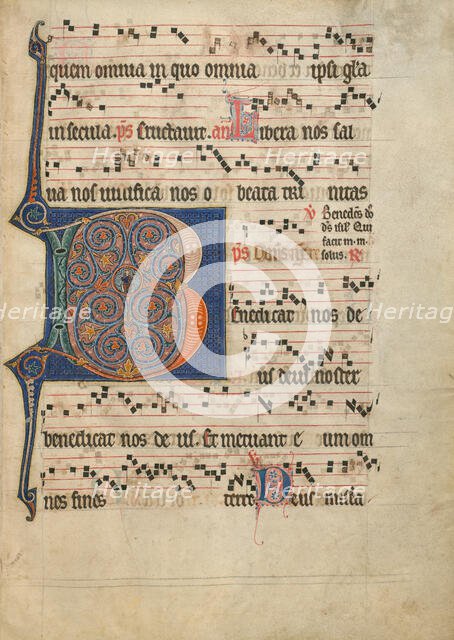 quem omnia in quo omnia ipsi gl'a
in secula. ps Eructavit. an Libera nos sal
va nos vivifica nos o beata trinitas
V Benedict'
Qui
facit m. m.
solus. R
ps
Benedicat nos de
us deus noster
benedicat nos de us. Et metuant e um om
nes fines terre Deus
Heritage
Heritage
Heritage
Heritage
Heritage
Heritage